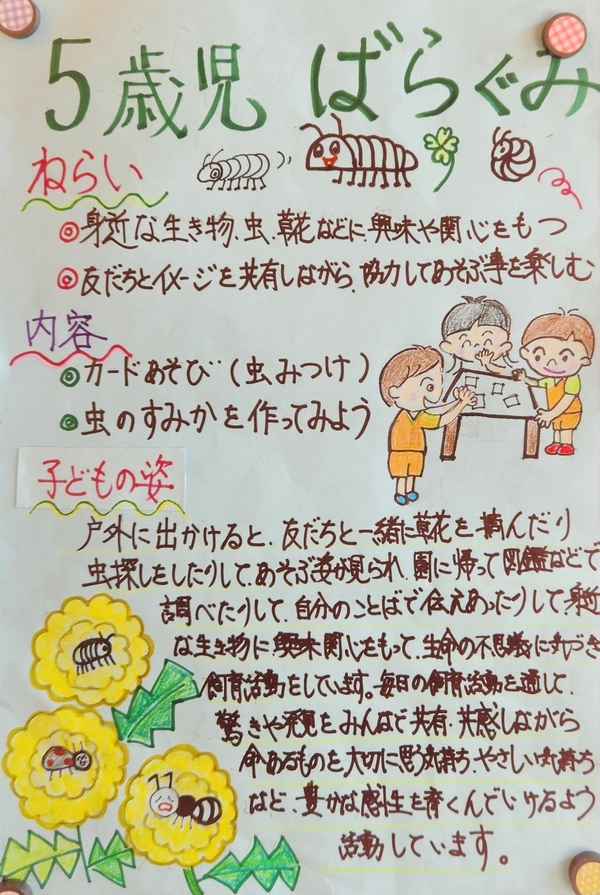 5歳児 ばらぐみ
ねらい
◎身近な生き物、虫、草花などに興味や関心をもつ
◎友だちとイメージを共有しながら、協力してあそぶ事を楽しむ
内容
◎カードあそび(虫みつけ)
◎虫のすみかを作ってみよう
子どもの姿
戸外に出かけると、友だちと一緒に草花を摘んだり
虫探しをしたりして、あそぶ姿が見られ、園に帰って図鑑などで
調べたりして、自分のことばで伝えあったりして身近
な生き物に興味関心をもって、生命の不思議に気づき
飼育活動をしています。毎日の飼育活動を通して、
驚きや発見をみんなで共有・共感しながら
命あるものを大切に思う気持ち、やさしい気持ち
など、豊かな感性を育くんでいけるよう
活動しています。